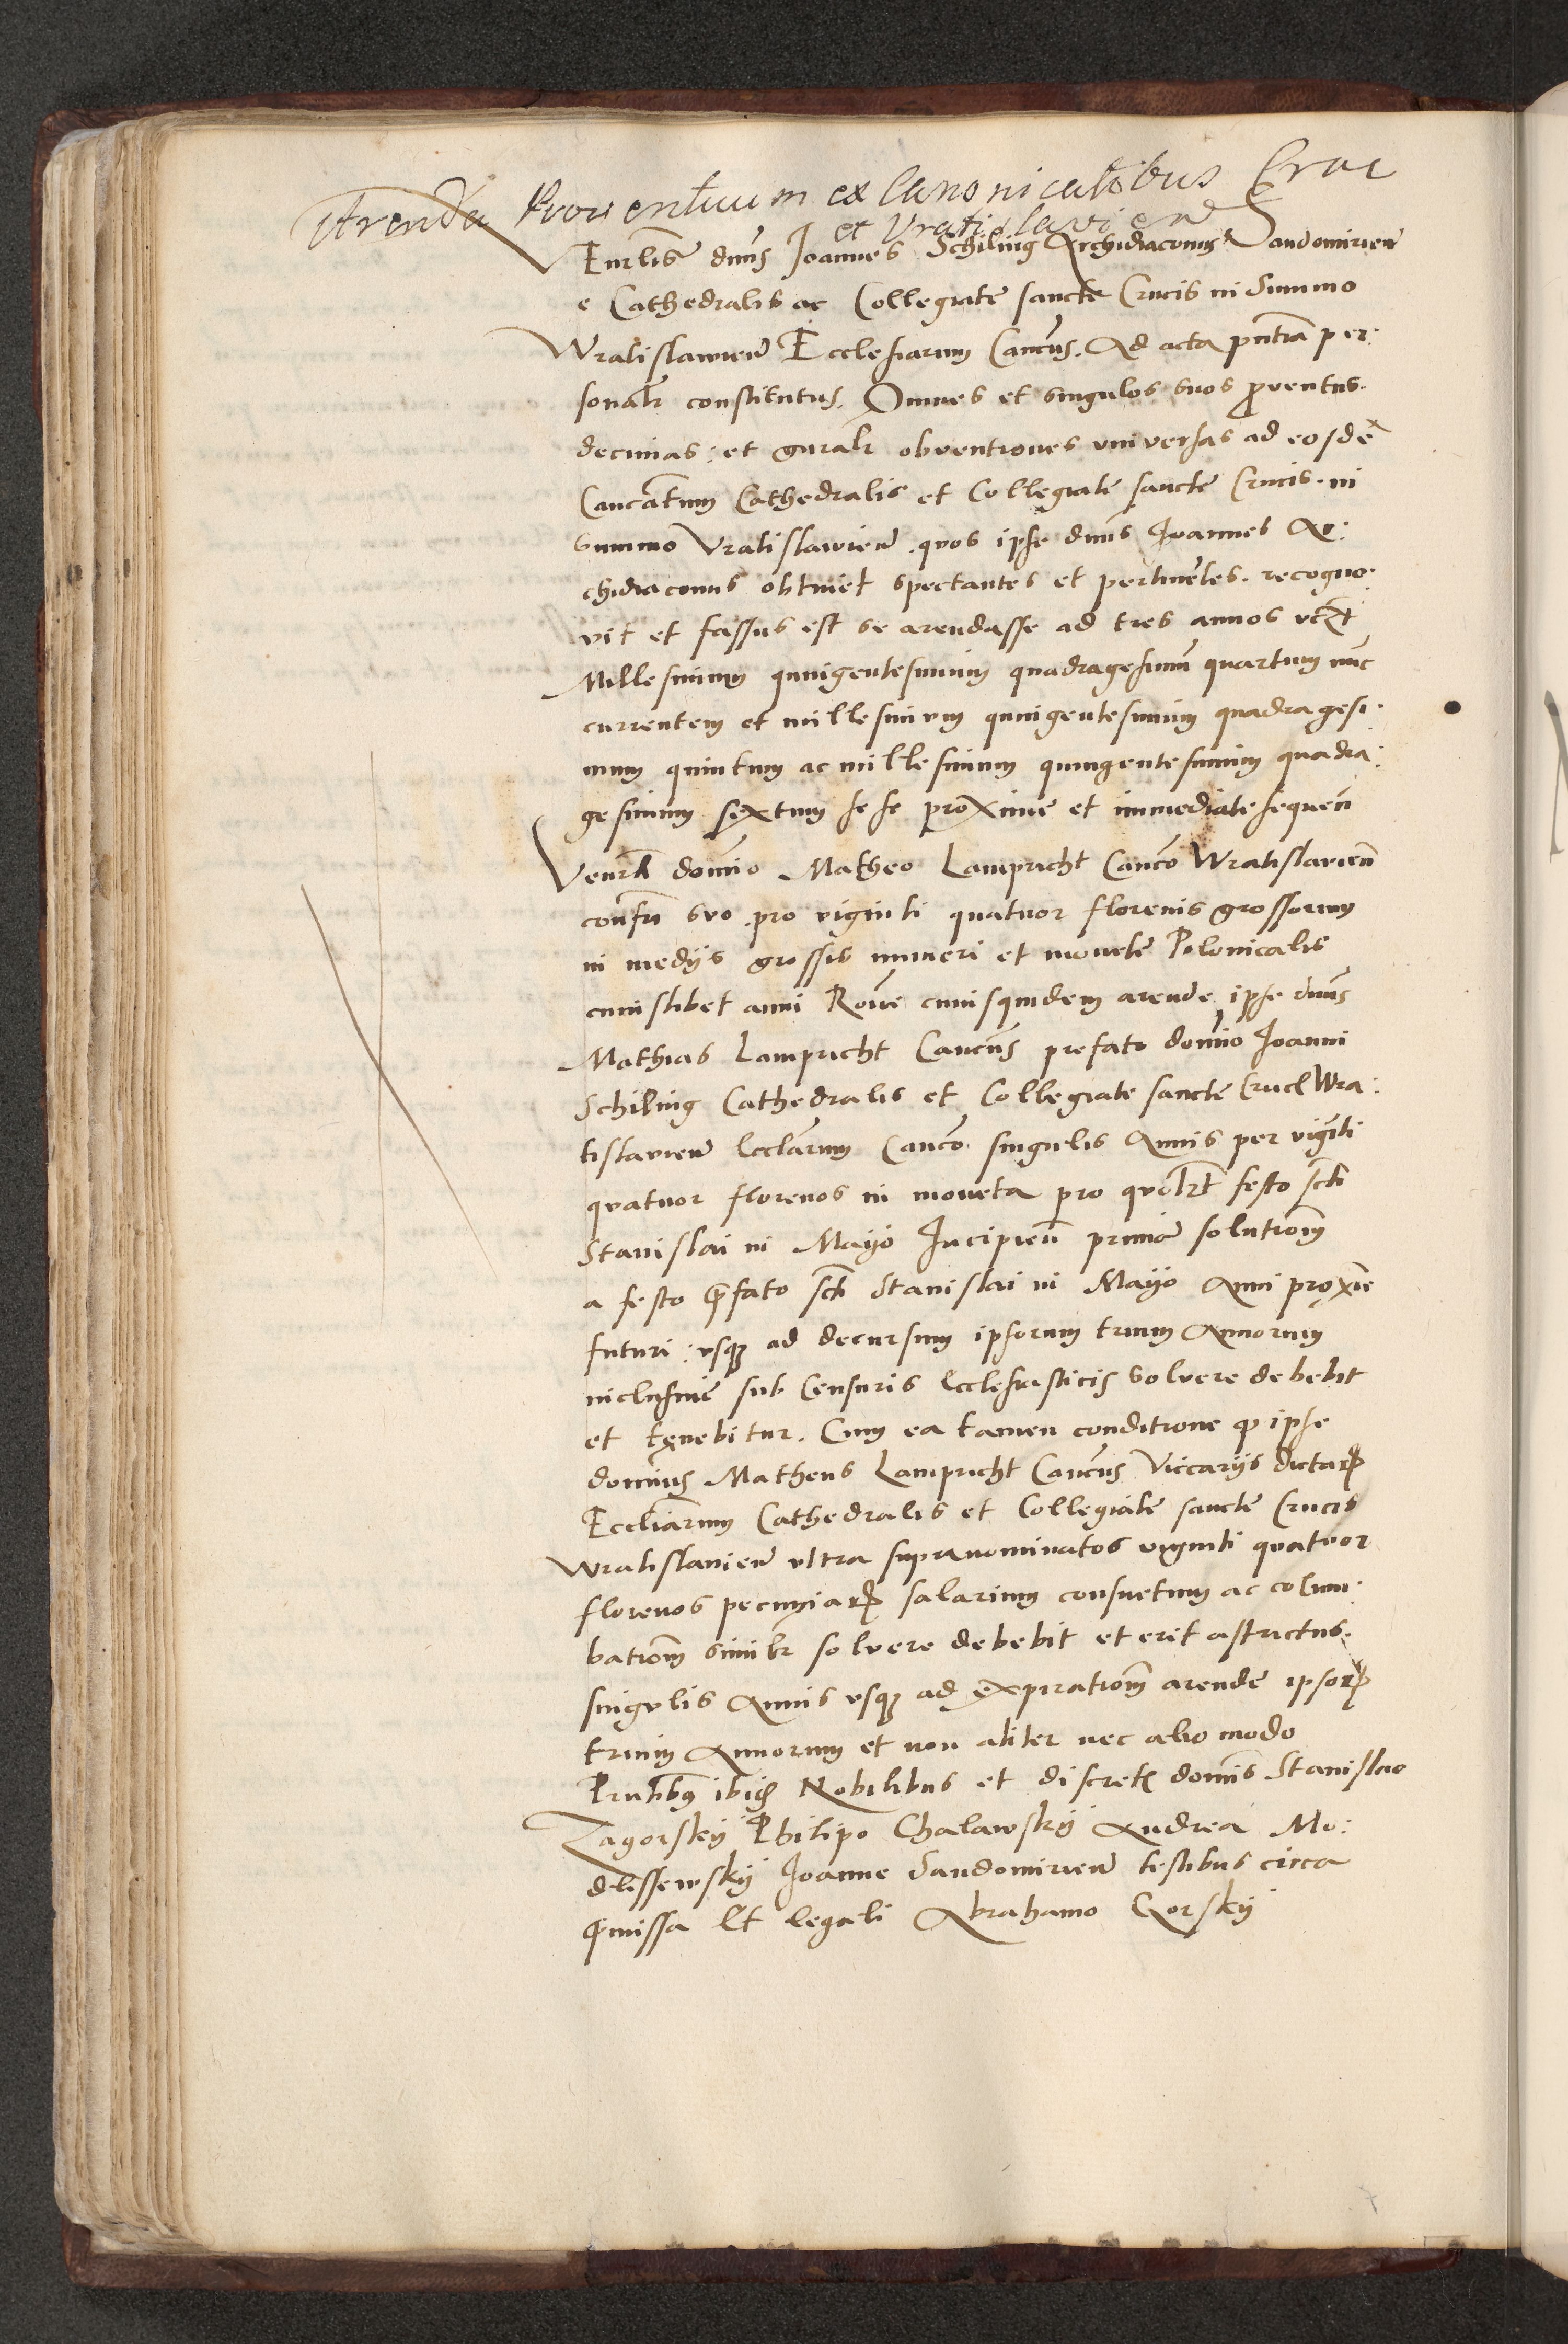 Arenda Proventuum ex Canonicatibus Crac
et Vratislavien
Venrlis dnus Joannes Schiling Archidiaconus Sandomirien
e Cathedralis ac Collegiate sancte Crucis in Summo
Wratislawien Ecclesiarum Cancus. Ad acta pntia per:
sonalr constitutus. Omnes et singulos suos proventus.
decimas: et gnralr obventiones universas ad eosde
Canoatum Cathedralis et Collegiate sancte Crucis. in
summo Vratislawien. quos ipse dnus Joannes Ar:
chidiaconus obtinet spectantes et pertinetes. recogno:
vit et fassus est se arendasse ad tres annos
Millesimum quingentesimum quadragesimum quartum nuc
currentem et millesimum quingentesimum quadragesi:
mum quintum ac millesimum quingentesimum quadra:
gesimum sextum se se proxime et immediate sequen
Venrli domino Matheo Lampricht Canco Wratislavien
confri suo. pro viginti quatuor florenis grossorum
in medijs grossis numeri et monete Polonicalis
cuiuslibet anni Roune cuiusquidem arende ipse dnus
Mathias Lampricht Cancus prefato domino Joanni
Schiling Cathedralis et Collegiate sancte Cruc Wra:
tislavien Ecclarum Canco singulis Annis per viginti
quatuor florenos in moneta pro quolzt festo scti
Stanislai in Mayo Incipien primam solutionm
a festo prfato scti Stanislai in Mayo Anni proxie
futuri: usque ad decursum ipsorum trium Annorum
inclusive sub Censuris Ecclesiasticis solvere debebit
et tenebitur. Cum ea tamen conditione quod ipse
dominus Matheus Lampricht Cancus Viccarijs dictarum
Eccliarum Cathedralis et Collegiate sancte Crucis
Wratislavien ultra supranominatos viginti quatuor
florenos pecuniarum salarium consuetum ac colum:
bationm similr solvere debebit et erit astrictus.
singulis Annis usque ad expirationm arende ipsorum
trium Annorum et non aliter nec alio modo
Pntibus ibidem Nobilibus et discretis dominis Stanislao
Zagorskij Philipo Chalawskij Andrea Mo:
dlissewskij Joanne Sandomirien testibus circa
prmissa Et legali Abrahamo Gorskij